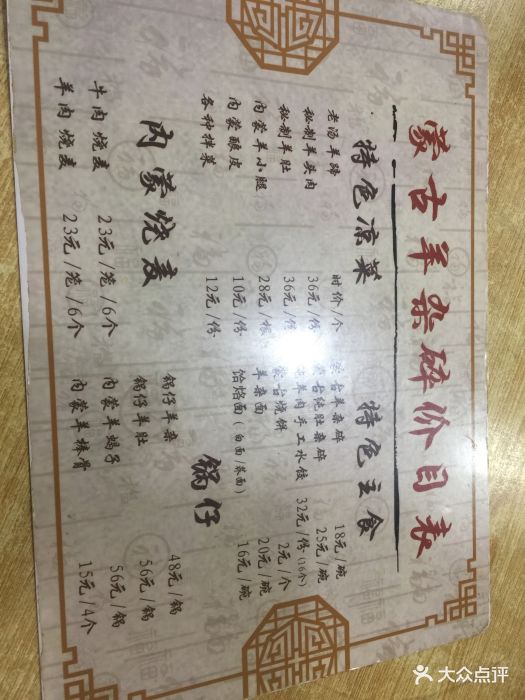 蒙古羊杂碎价目表
特色凉菜
老汤羊蹄 时价/个
秘制羊头肉 36元/份
秘制羊肚 36元/份
内蒙羊小腿 28元/根
内蒙酿皮 10元/份
各种拌菜 12元/份
特色主食
蒙古羊杂碎 18元/碗
纯肚杂碎 25元/碗
羊肉手工水饺 32元/份(16个)
蒙古烧饼 2元/个
羊杂面 20元/碗
饸烙面(白面/荞面) 16元/碗
内蒙烧麦
牛肉烧麦 23元/笼/6个
羊肉烧麦 23元/笼/6个
锅仔
锅仔羊杂 48元/锅
锅仔羊肚 56元/锅
内蒙羊蝎子 56元/锅
内蒙羊棒骨 15元/4个
大众点评